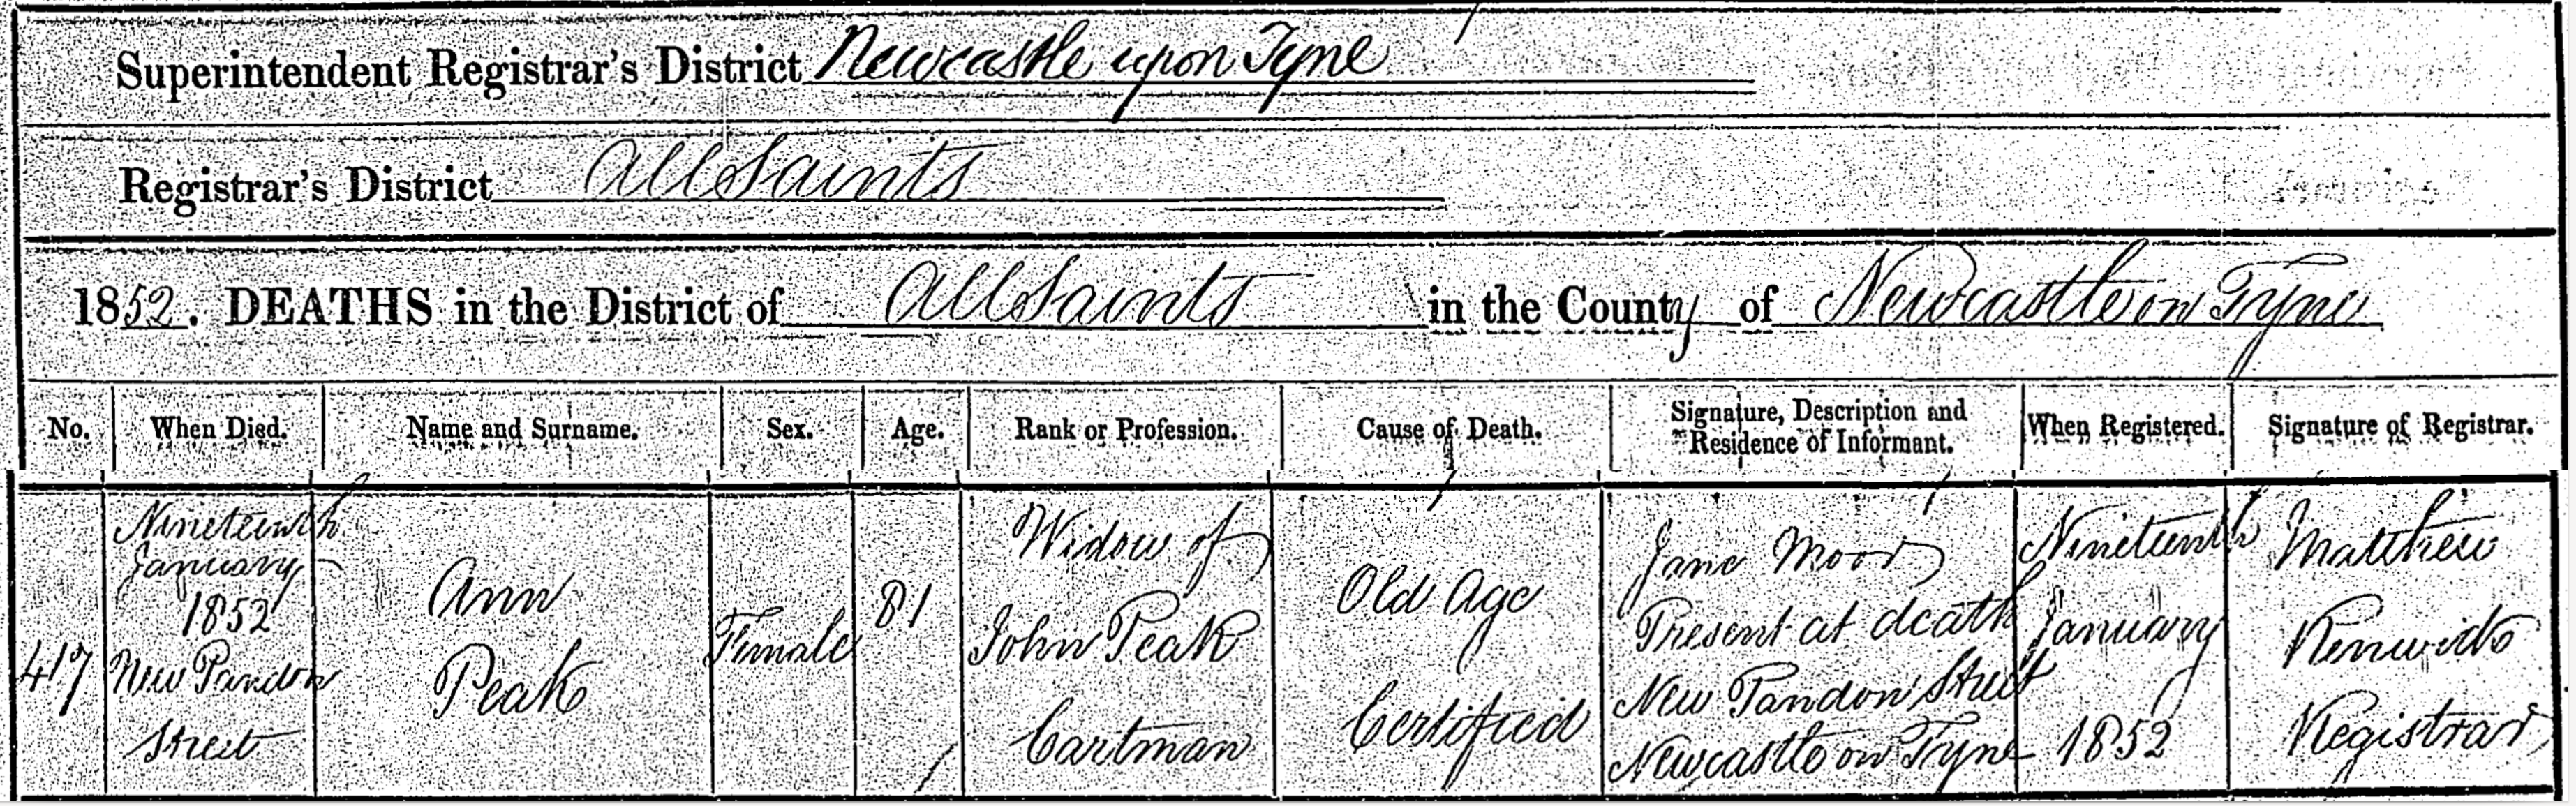 Superintendent Registrar's District Newcastle upon Tyne
Registrar's District All Saints
1852. DEATHS in the District of All Saints in the County of Newcastle on Tyne
No. When Died. Name and Surname. Sex. Age. Rank or Profession. Cause of Death. Signature, Description and Residence of Informant. When Registered. Signature of Registrar.
417
Nineteenth
January
1852
New Pandon
Street
Ann
Peak
Female
81
Widow of
John Peak
Cartman
Old Age
Certified
Jane Moor
Present at death
New Pandon Street
Newcastle on Tyne
Nineteenth
January
1852
Matthew
Renwick
Registrar